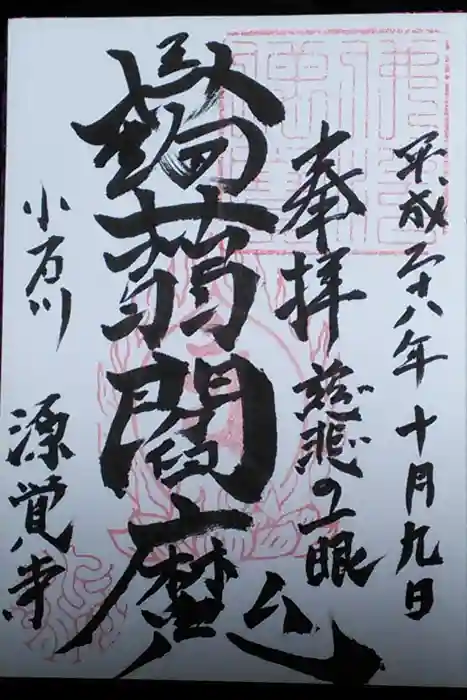 平成二十八年十月九日
奉拝 慈悲の一眼
蒟蒻閻魔
小石川
源覚寺